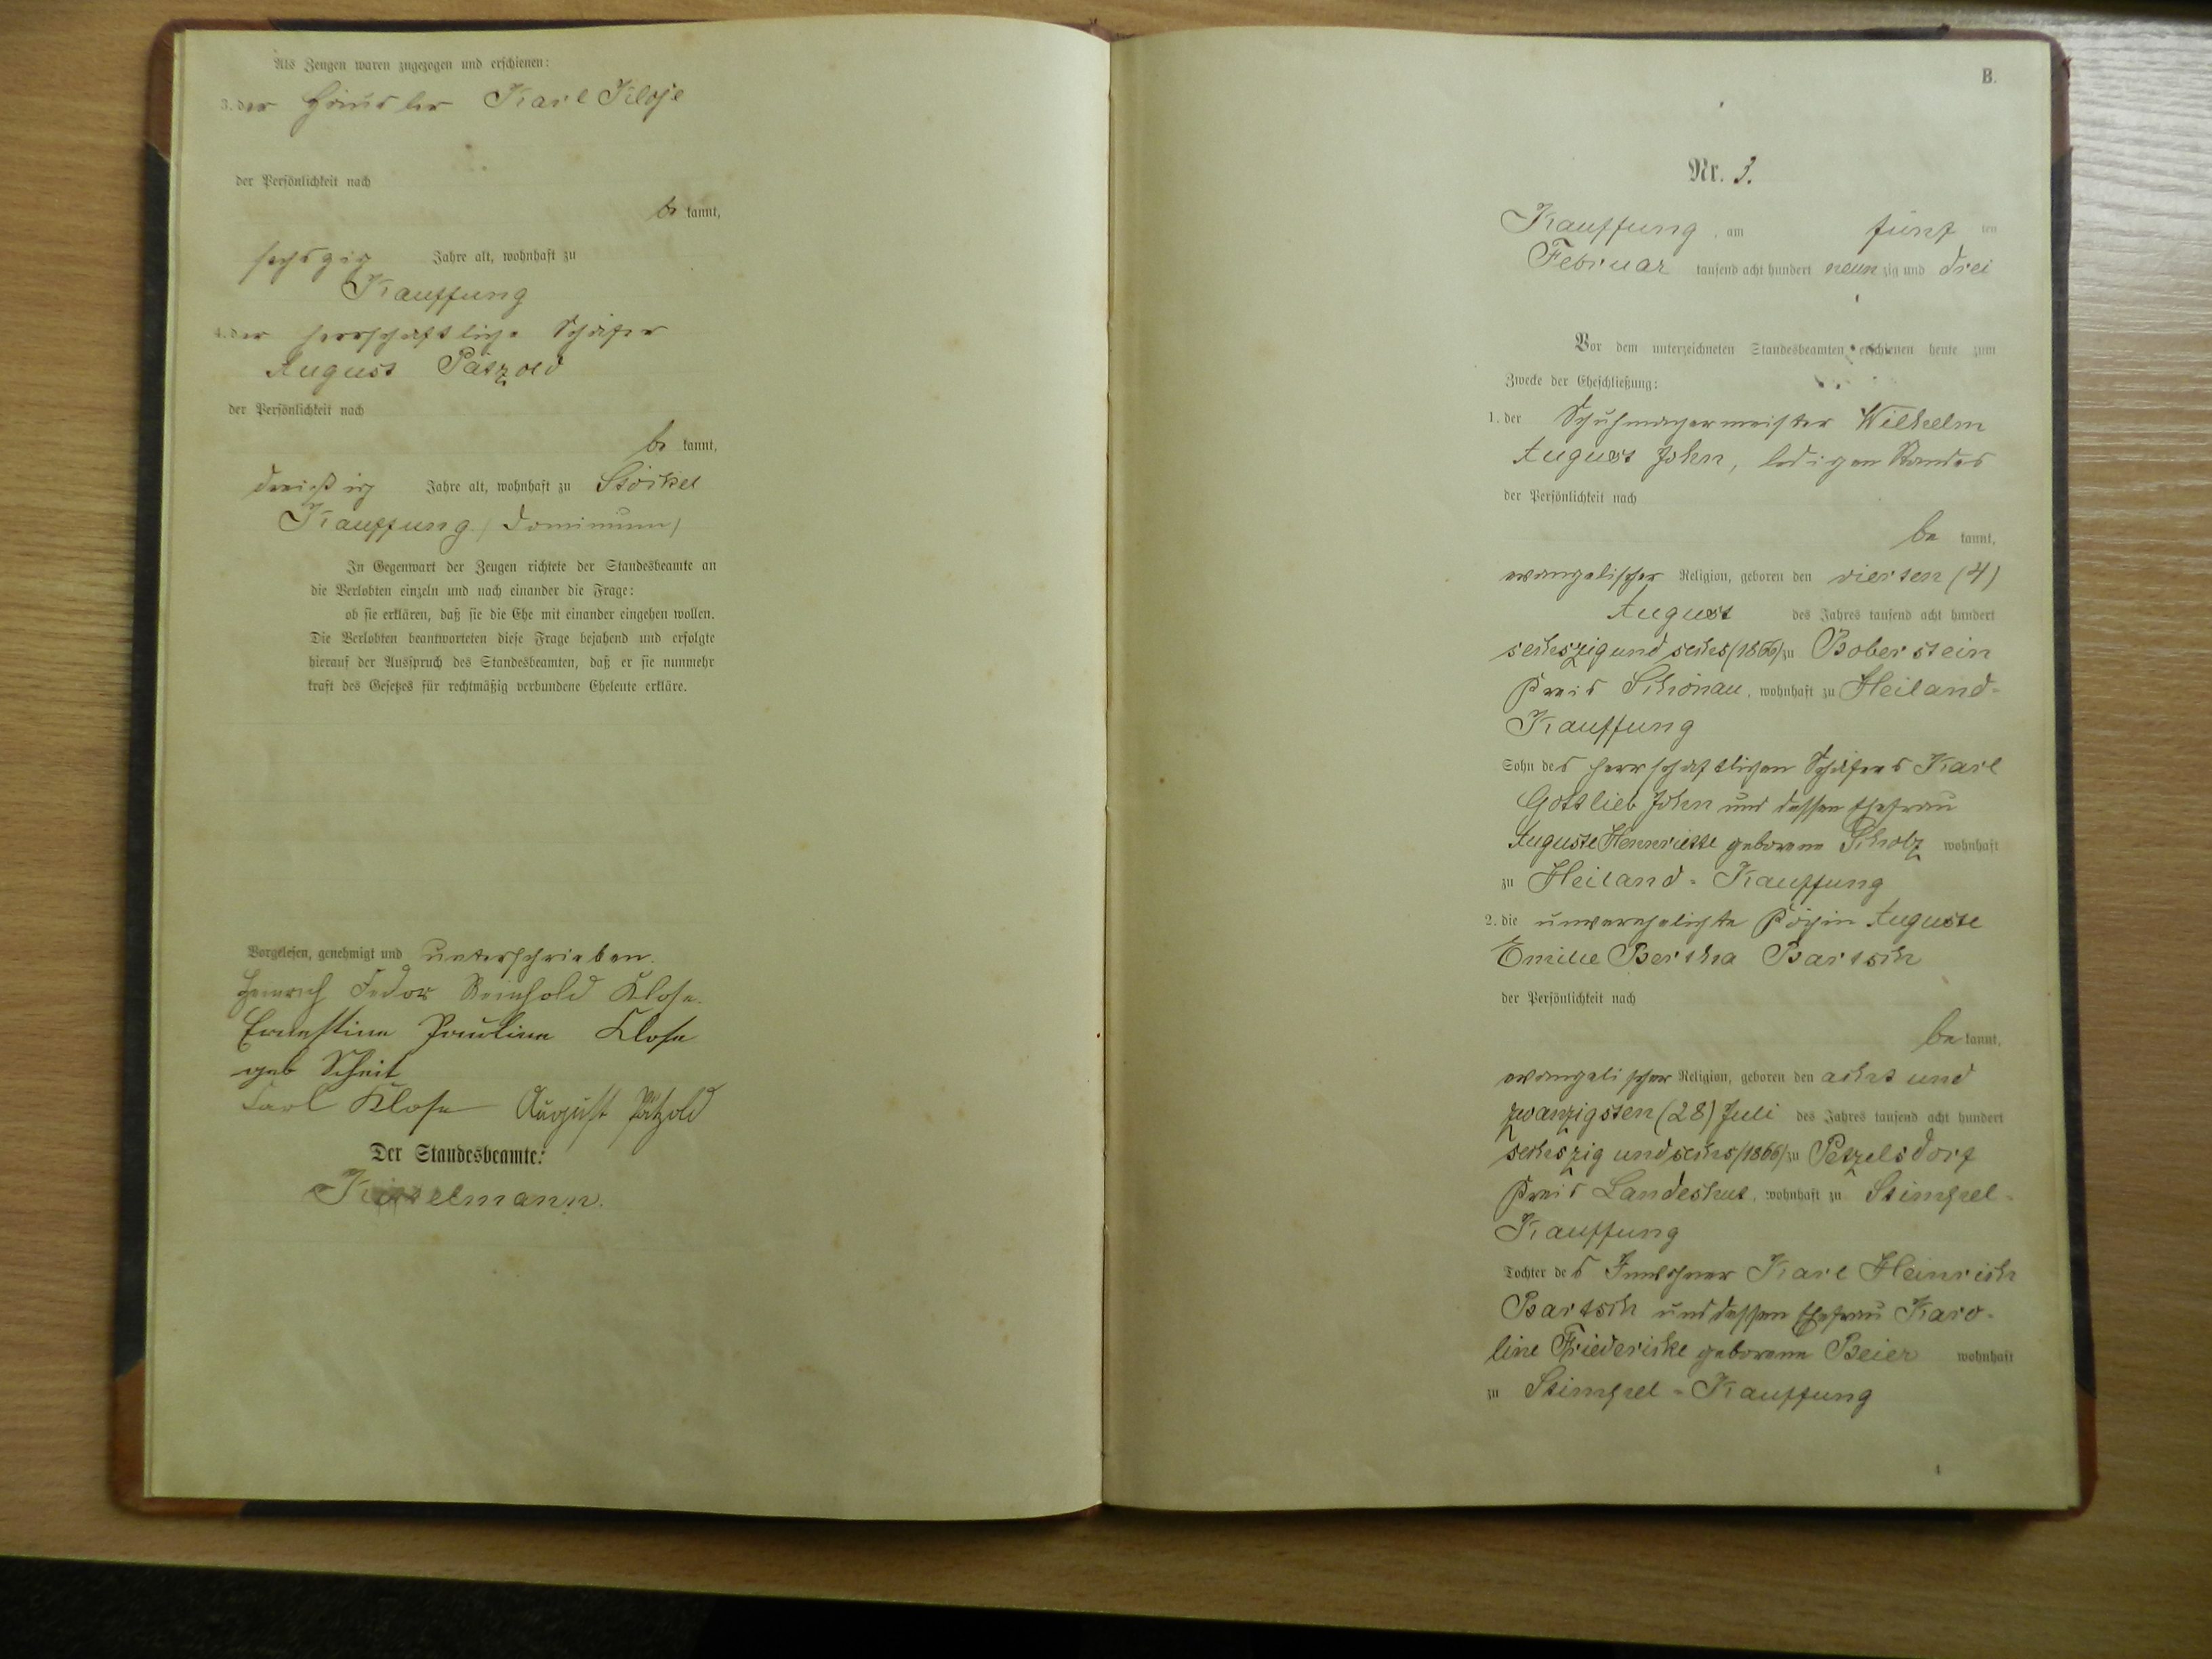 Als Zeugen waren zugezogen und erschienen:
3. der Häusler Karl Klose
der Persönlichkeit nach
be kannt,
sechszig Jahre alt, wohnhaft zu
Kauffung
4. der herrschaftliche Schäfer
August Pätzold
der Persönlichkeit nach
be kannt,
dreißig Jahre alt, wohnhaft zu Stöckel
Kauffung (Dominium)
In Gegenwart der Zeugen richtete der Standesbeamte an
die Verlobten einzeln und nach einander die Frage:
ob sie erklären, daß sie die Ehe mit einander eingehen wollen.
Die Verlobten beantworteten diese Frage bejahend und erfolgte
hierauf der Ausspruch des Standesbeamten, daß er sie nunmehr
kraft des Gesetzes für rechtmäßig verbundene Eheleute erkläre.
Vorgelesen, genehmigt und unterschrieben.
Heinrich Fedor Reinhold Klose.
Ernestine Pauline Klose
geb Scheit
Carl Klose August Pätzold
Der Standesbeamte:
B.
Nr. 3.
Kauffung, am fünf ten
Februar tausend acht hundert neun zig und drei
Vor dem unterzeichneten Standesbeamten erschienen heute zum
Zwecke der Eheschließung:
1. der Schuhmachermeister Wilhelm
August John, ledigen Standes
der Persönlichkeit nach
be kannt,
evangelischer Religion, geboren den vierten (4)
August des Jahres tausend acht hundert
sechszig und sechs (1866) zu Boberstein
Kreis Schönau, wohnhaft zu Heiland-
Kauffung
Sohn des herrschaftlichen Schäfers Karl
Gottlieb John und dessen Ehefrau
Auguste Henriette geborene Scholz wohnhaft
zu Heiland-Kauffung
2. die unverehelichte Köchin Auguste
Emilie Bertha Bartsch
der Persönlichkeit nach
be kannt,
evangelischer Religion, geboren den acht und
zwanzigsten (28) Juli des Jahres tausend acht hundert
sechszig und sechs (1866) zu Petzelsdorf
Kreis Landeshut, wohnhaft zu Stimpel-
Kauffung
Tochter des Inwohner Karl Heinrich
Bartsch und dessen Ehefrau Karo-
line Friederike geborene Beier wohnhaft
zu Stimpel-Kauffung
4